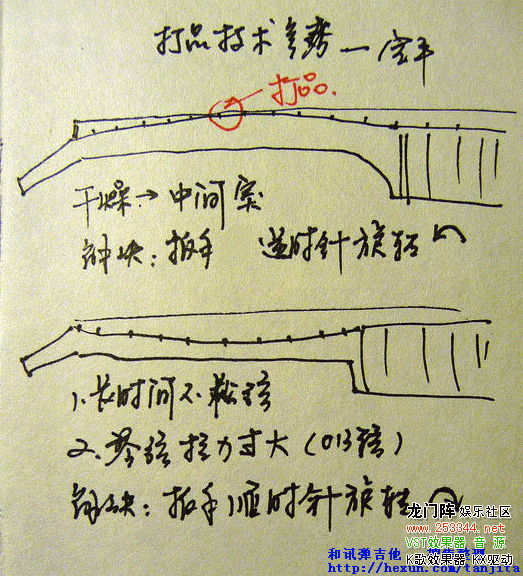 打品技术参考一
打品.
干燥→中间突
解决：扳手 逆时针旋转
1.长时间不松弦
2.琴弦拉力过大（013弦）
解决：扳手顺时针旋转
龙门阵 娱乐社区
www.253344.net
VST效果器 音 源
K歌效果器 KX驱动
和讯弹吉他
http://hexun.com/tanjita